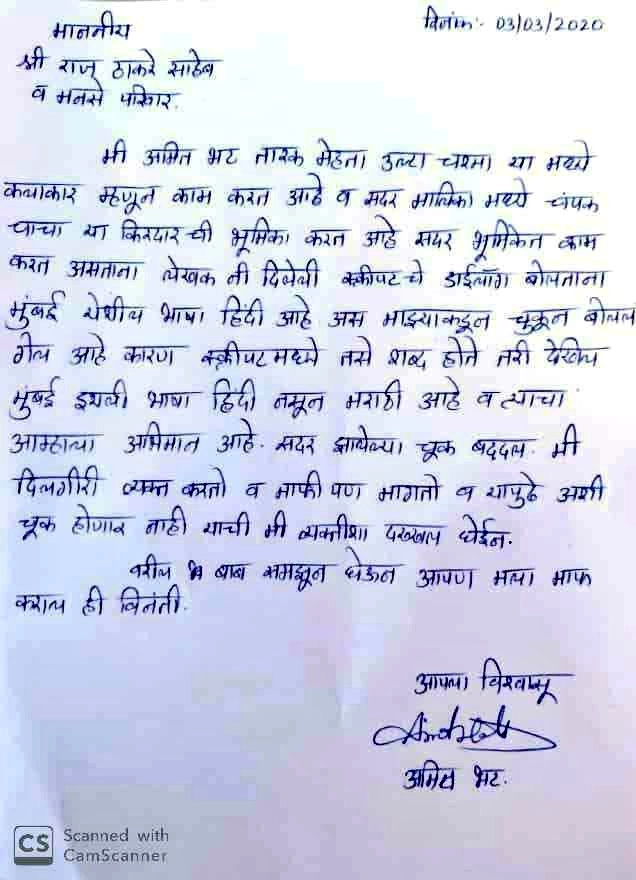 माननीय
दिनांक:- 03/03/2020
श्री राज ठाकरे साहेब
व मनसे परिवार.
मी अमित भट तारक मेहता उल्टा चश्मा या मध्ये
कलाकार म्हणून काम करत आहे व सदर मालिका मध्ये चंपक
चाचा या किरदार ची भूमिका करत आहे सदर भूमिकेत काम
करत असताना लेखक नी दिलेली स्क्रीपट चे डाईलॉग बोलताना
मुंबई येथील भाषा हिंदी आहे अस माझ्याकडून चुकून बोलल
गेल आहे कारण स्क्रीपट मध्ये तसे शब्द होते तरी देखिल
मुंबई इथली भाषा हिंदी नसून मराठी आहे व त्याचा
आम्हाला अभिमान आहे. सदर झालेल्या चूक बददल. मी
दिलगीरी व्यक्त करतो व माफी पण मागतो व यापुढे अशी
चूक होणार नाही याची मी व्यक्तीशा दखखल घेईन.
वरील बाब समझून घेऊन आपण मला माफ
कराल ही विनंती.
आपला विश्वासू
अमित भट.
CS Scanned with
CamScanner